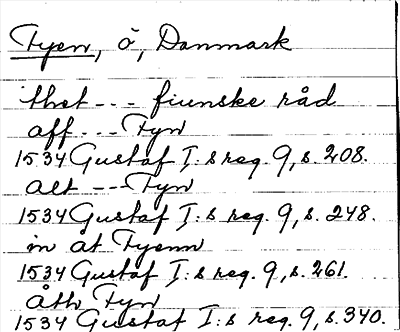 Fyen, ö, Danmark
thet --- fiunske råd
aff --- Fyn
1534 Gustaf I:s reg. 9, s. 208.
alt --- Fyn
1534 Gustaf I:s reg. 9, s. 248.
in åt Fyenn
1534 Gustaf I:s reg. 9, s. 261.
åth Fyn
1534 Gustaf I:s reg. 9, s. 340.